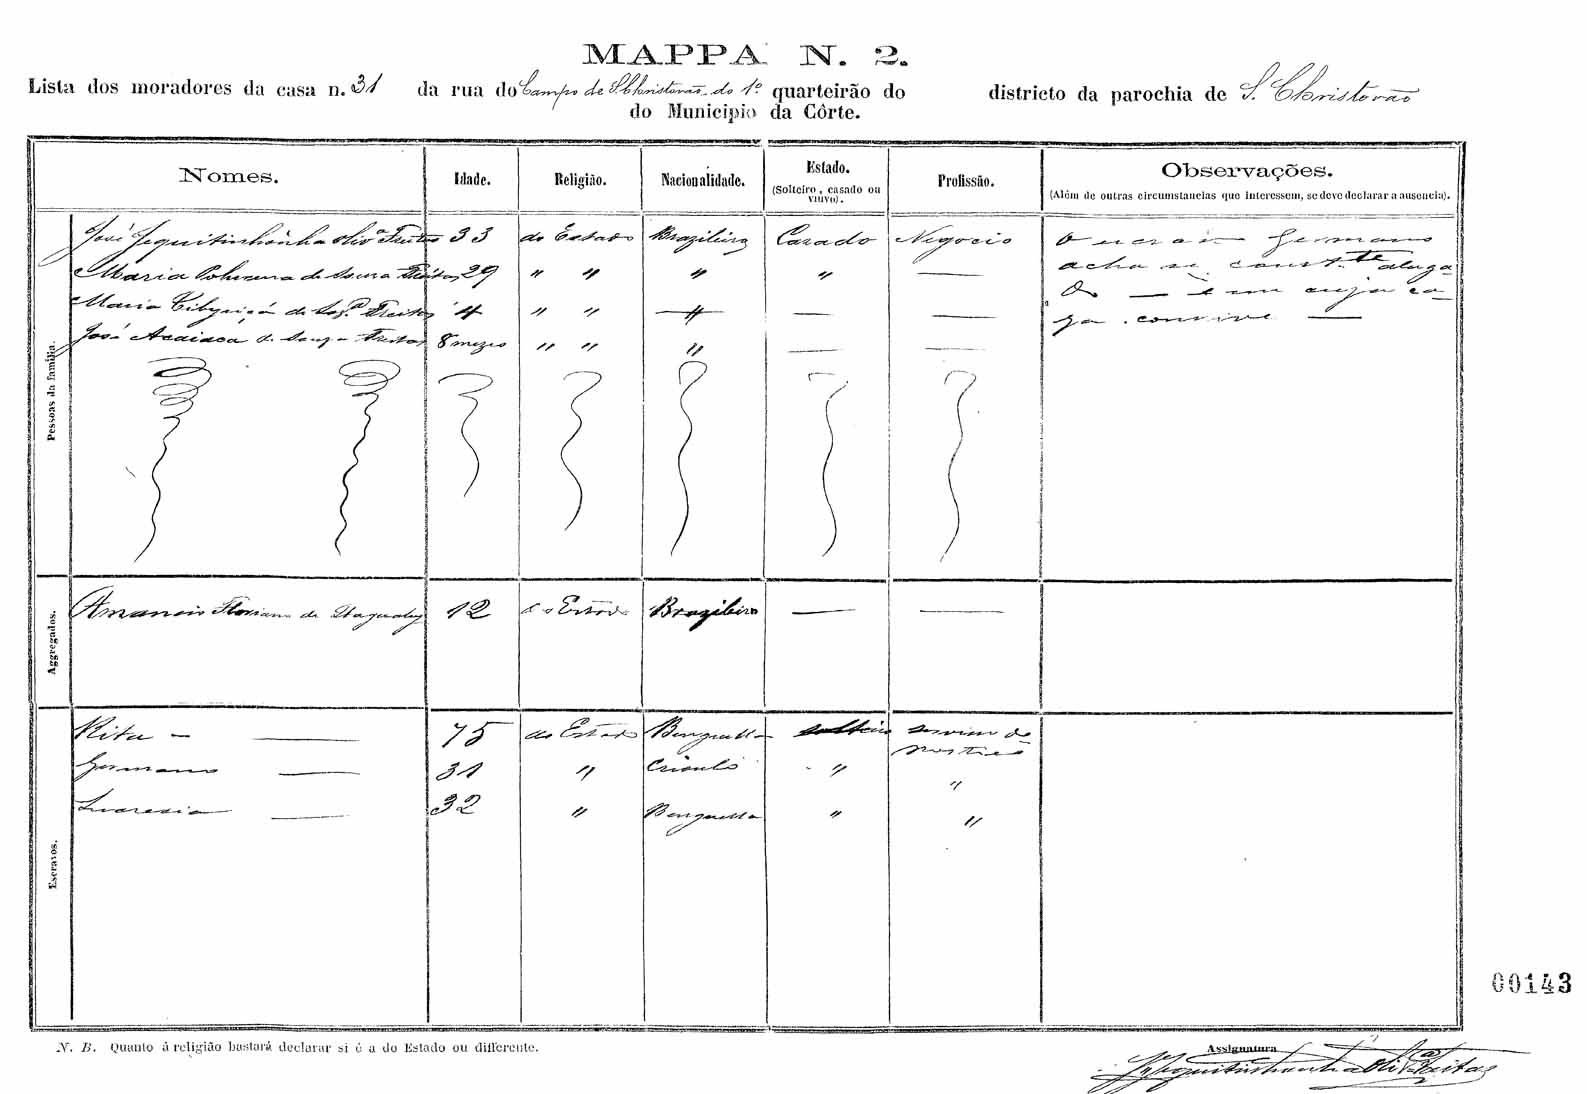 MAPPA N. 2.
Lista dos moradores da casa n. 31 da rua do Campo de S. Christovão do 1º quarteirão do districto da parochia de S. Christovão
do Municipio da Côrte.
Nomes. Idade. Religião. Nacionalidade. Estado. Profissão. Observações.
(Solteiro, casado ou viuvo). (Além de outras circumstancias que interessem, se deve declarar a ausencia).
Pessoas da familia.
José Jequitinhônha Olivª Freitas 33 do Estado Brazileiro Casado Negocio O Germano
Maria de Souza Freitas 29 " " " " — acha se const.te aluga
Maria de Sozª Freitas 4 " " — — do — em cuja ca
José Acaiaca de Souza Freitas 8 mezes " " " — — za convive —
Aggregados.
Amancio Floriano de 12 do Estado Brazileiro — —
Escravos.
Rita — 75 do Estado Benguella solteiro
Germano — 31 " Crioulo " "
— 32 " Benguella " "
00143
N. B. Quanto á religião bastará declarar si é a do Estado ou differente.
Assignatura
Jequitinhonha Olivª Freitas